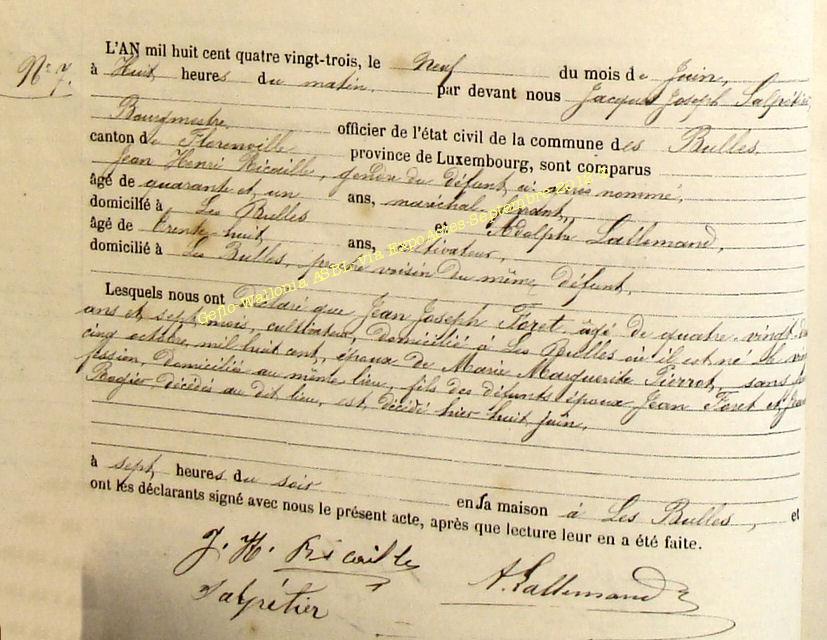 L'AN mil huit cent quatre vingt-trois, le Neuf du mois de Juin,
N° 7. à Huit heures du matin, par devant nous Jacques Joseph Salpétier
Bourgmestre officier de l'état civil de la commune des Bulles,
canton de Florenville province de Luxembourg, sont comparus
Jean Henri Ricaille, gendre du défunt ci après nommé,
âgé de quarante et un ans, maréchal ferrant,
domicilié à Les Bulles et Adolphe Lallemand,
âgé de trente huit ans, cultivateur,
domicilié à Les Bulles, proche voisin du même défunt,
Lesquels nous ont déclaré que Jean Joseph Foret âgé de quatre-vingt
ans et sept mois, cultivateur, domicilié à Les Bulles où il est né le
cinq octobre mil huit cent, époux de Marie Marguerite Pierrot, sans
fession, domiciliée au même lieu, fils des défunts époux Jean Foret et
Rogier décédés au dit lieu, est décédé hier huit juin,
à sept heures du soir en sa maison à Les Bulles, et
ont les déclarants signé avec nous le présent acte, après que lecture leur en a été faite.
J. H. Ricaille
A. Lallemand
Salpétier
Geño-Wallonia ASBL via ExpoActes-Septembre